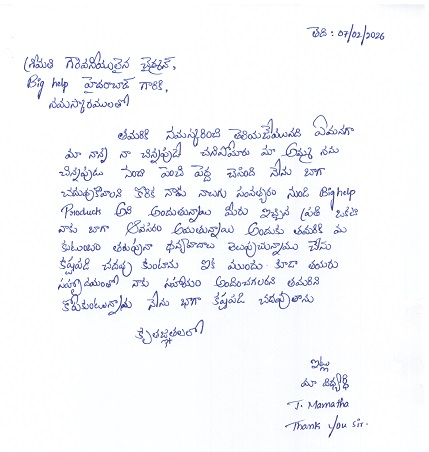 తేది : 07/02/2026
శ్రీమతి గౌరవనీయులైన చైర్మన్,
Big help హైదరాబాద్ గారికి,
నమస్కారములతో
తమరికి నమస్కరించి తెలియజేయునది ఏమనగా
మా నాన్న నా చిన్నప్పుడే చనిపోయారు మా అమ్మ నను
చిన్నప్పుడు నుంచి పెంచి పెద్ద చేసింది నేను బాగా
చదువుకోవాలని కోరిక నాకు నాలుగు సంవత్సరం నుండి Big help
Product అవి అందుతున్నాయి మీరు ఇచ్చిన ప్రతి ఒకటి
నాకు బాగా అవసరం అయుతున్నాయి అందుకు తమరికి మా
కుటుంబం తరుపునా ధన్యవాదాలు తెలుపుచున్నాము నేను
కష్టపడి చదువు కుంటాను ఇక ముందు కూడా తమరు
నాకు సహాయం అందించగలరని తమరిని
కోరుకుంటున్నాను నేను బాగా కష్టపడి చదువుతాను
కృతజ్ఞతలతో
ఇట్లు
మీ విద్యార్థి
T. Mamatha
Thank you sir.